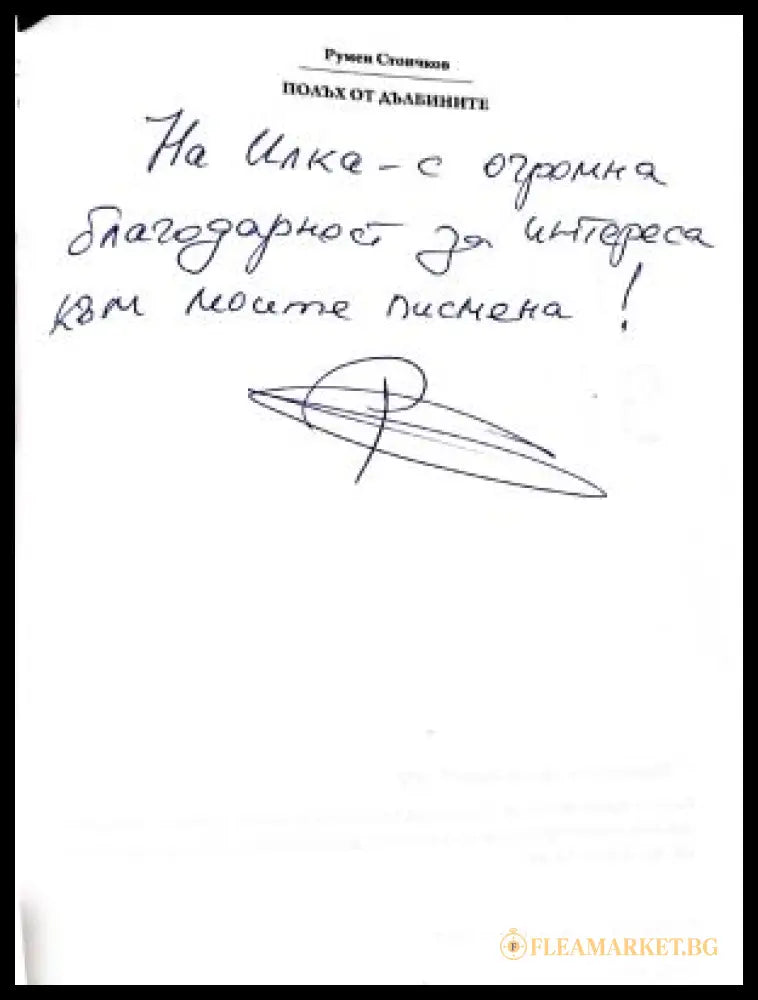 Румен Стоичков
ПОЛЪХ ОТ ДЪЛБИНИТЕ
На Илка - с огромна
благодарност за интереса
към моите писмена!
FLEAMARKET.BG